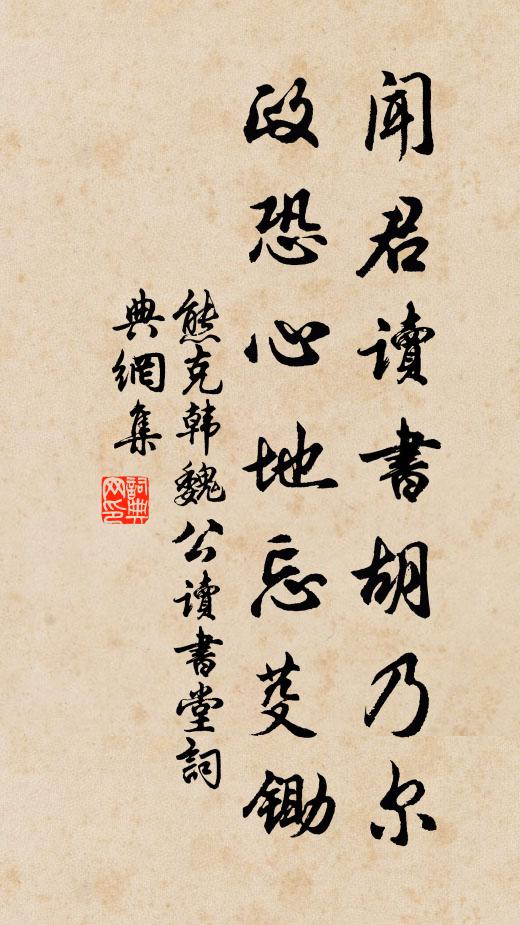 闻君读書胡乃尔
政恐心地忘芟锄
熊克韩魏公读書堂词
典網集
詞典
网印